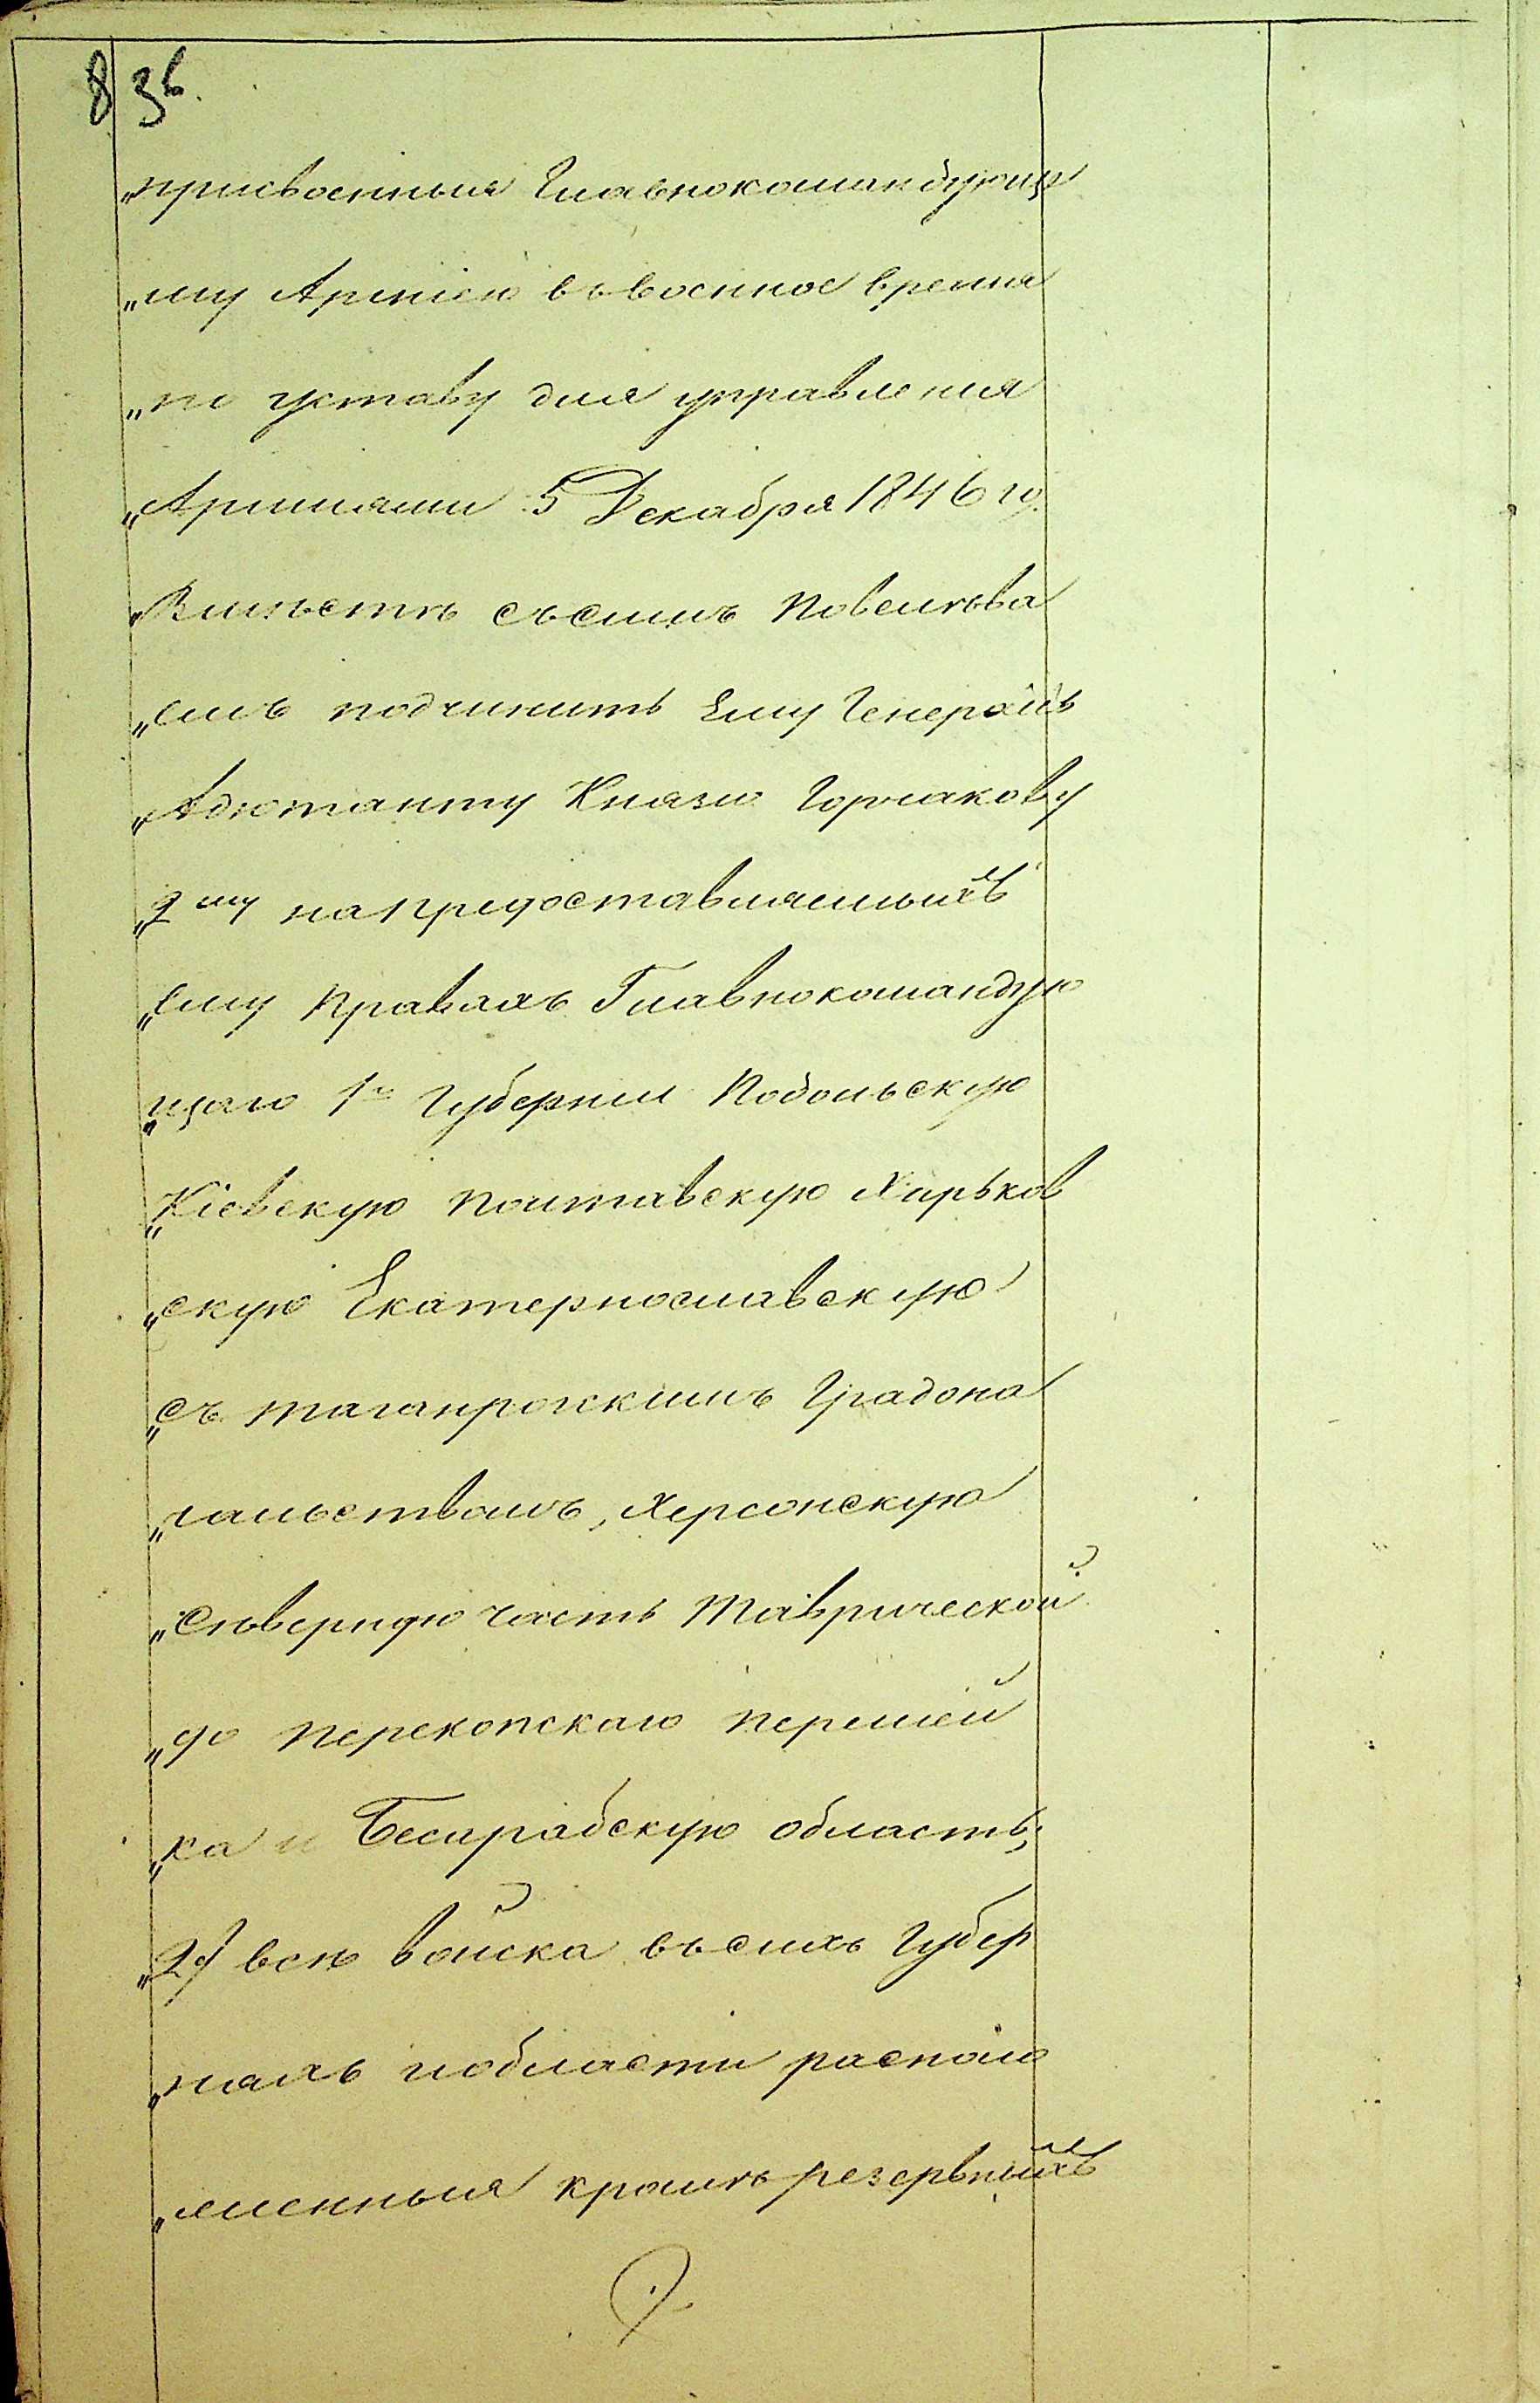 8 36.
„присвоенныя Главнокомандующе
„му Арміею въ военное время
„по уставу для управленія
„Арміями 5 Декабря 1846 го.
„Вмѣстѣ съ симъ Повелѣва
„емъ подчинить Ему Генералъ
„Адютанту Князю Горчакову
„2му на предоставляемыхъ
„ему Правахъ Главнокомандую
„щаго 1е Губерніи Подольскую
„Кіевскую Полтавскую Харьков
„скую Екатернославскую
„съ таганрогскимъ Градона
„чальствомъ, Херсонскую
„Сѣверную часть Таврической
„до Перекопскаго Перешей
„ка и Бесарабскую область;
„2) всѣ войска въ сихъ Губер
„ніяхъ и области располо
„женныя кромѣ резервныхъ